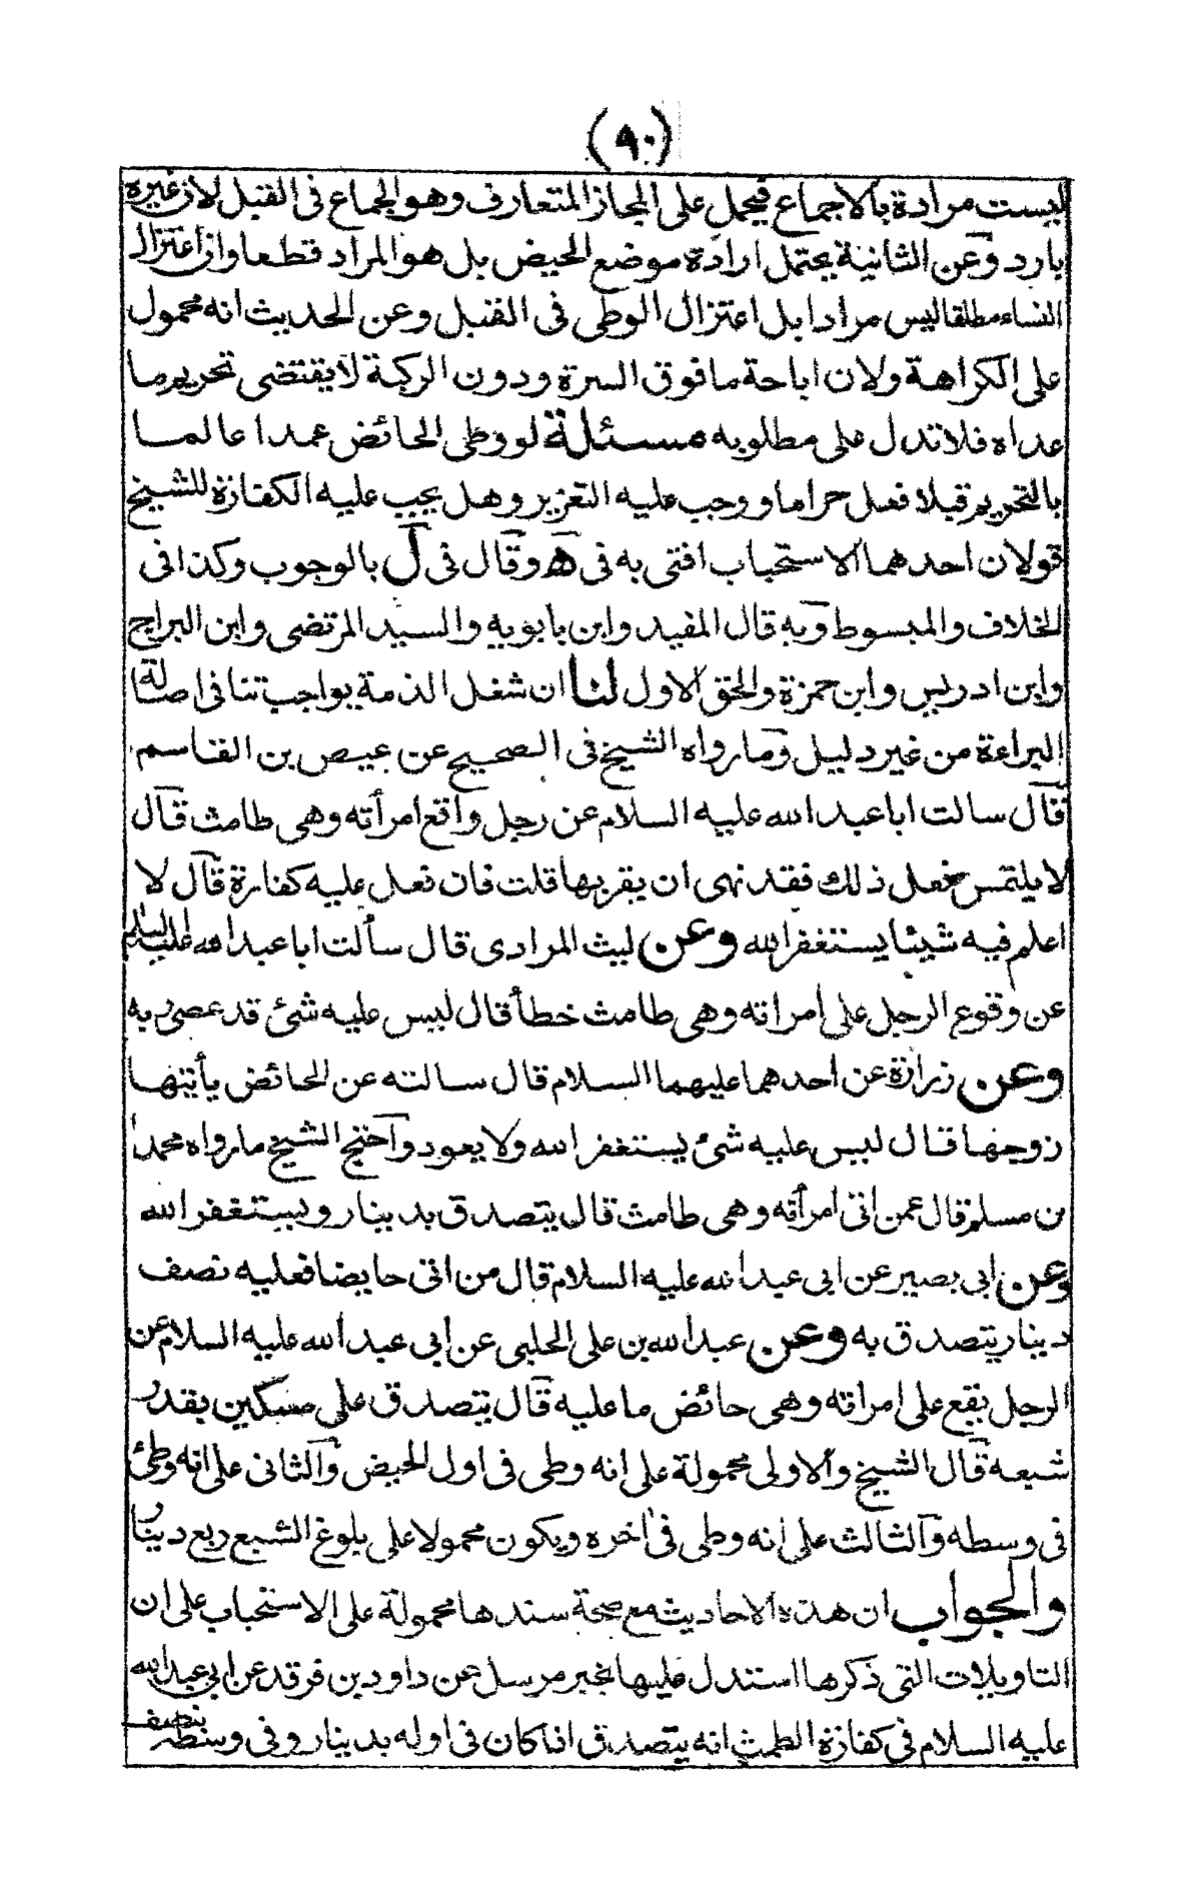 (٩٠)
ليست مرادة بالاجماع فيحمل على المجاز المتعارف وهو الجماع في القبل لان غيره
بارد وعن الثانية يحتمل ارادة موضع الحيض بل هو المراد قطعا وان اعتزال
النساء مطلقا ليس مرادا بل اعتزال الوطى فى القبل وعن الحديث انه محمول
على الكراهة ولان اباحة ما فوق السرة ودون الركبة لا يقتضى تحريم ما
عداه فلا تدل على مطلوبه مسئلة لو وطى الحائض عمدا عالما
بالتحريم قبلا فعل حراما ووجب عليه التعزير وهل يجب عليه الكفارة للشيخ
قولان احدهما الاستحباب افتى به فى ه وقال فى ل بالوجوب وكذا فى
الخلاف والمبسوط وبه قال المفيد وابن بابويه والسيد المرتضى وابن البراج
وابن ادريس وابن حمزة والحق الاول لنا ان شغل الذمة بواجب تنافى اصالة
البراءة من غير دليل وما رواه الشيخ فى الصحيح عن عيص بن القاسم
قال سالت ابا عبد الله عليه السلام عن رجل واقع امرأته وهى طامث قال
لا يلتمس فعل ذلك فقد نهى ان يقربها قلت فان فعل عليه كفارة قال لا
اعلم فيه شيئا يستغفر الله وعن ليث المرادى قال سألت ابا عبد الله عليه السلام
عن وقوع الرجل على امراته وهى طامث خطأ قال ليس عليه شئ قد عصى ربه
وعن زرارة عن احدهما عليهما السلام قال سالته عن الحائض يأتيها
زوجها قال ليس عليه شئ يستغفر الله ولا يعود واحتج الشيخ ما رواه محمد
بن مسلم قال عمن اتى امرأته وهى طامث قال يتصدق بدينار ويستغفر الله
وعن ابى بصير عن ابى عبد الله عليه السلام قال من اتى حايضا فعليه نصف
دينار يتصدق به وعن عبد الله بن على الحلبى عن ابى عبد الله عليه السلام عن
الرجل يقع على امراته وهى حائض ما عليه قال يتصدق على مسكين بقدر
شبعه قال الشيخ والاولى محمولة على انه وطى فى اول الحيض والثانى على انه وطئ
فى وسطه والثالث على انه وطى فى اخره ويكون محمولا على بلوغ الشبع ربع دينار
والجواب ان هذه الاحاديث مع صحة سندها محمولة على الاستحباب على ان
التاويلات التى ذكرها استدل عليها بخبر مرسل عن داود بن فرقد عن ابى عبد الله
عليه السلام فى كفارة الطمث انه يتصدق اذا كان فى اوله بدينار وفى وسطه بنصف